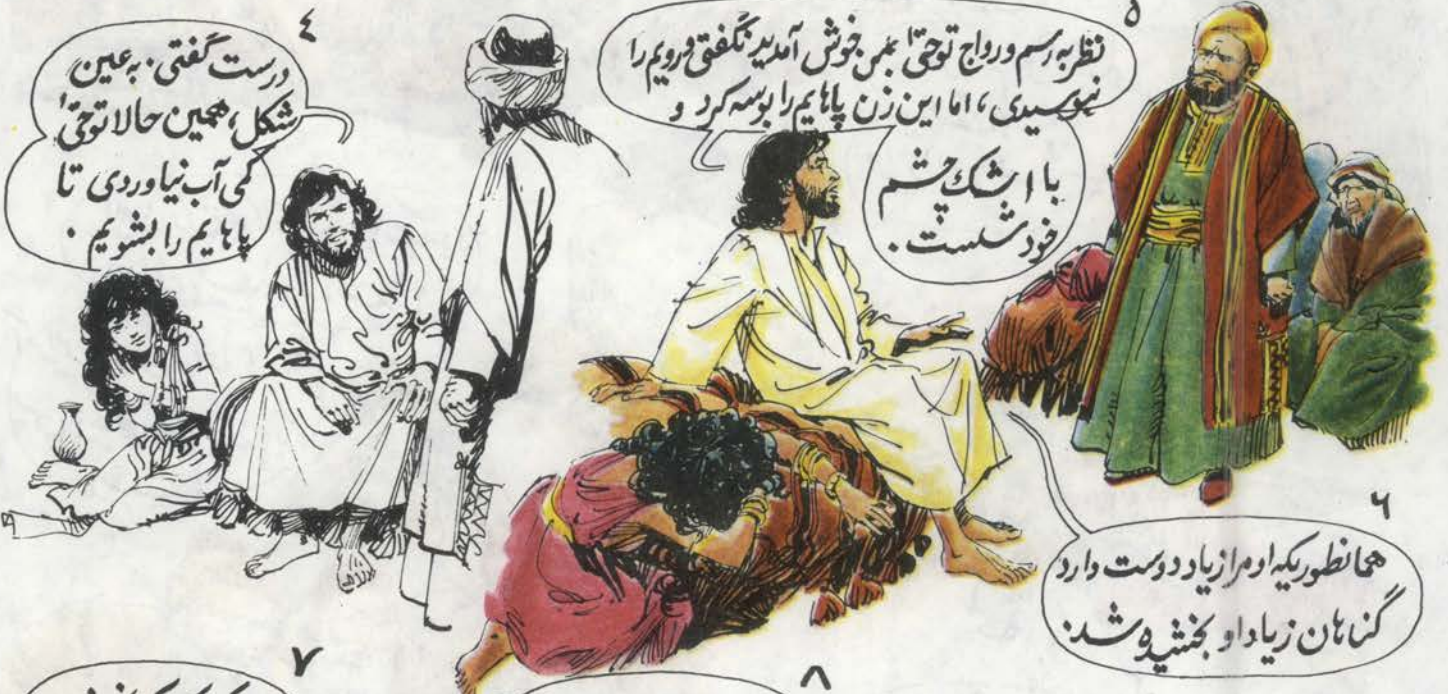 ٤
درست گفتی. به عین
شکل، همین حالا تو حتیٰ
کمی آب نیاوردی تا
پاهایم را بشویم.
۵
نظر به رسم و رواج تو حتیٰ بمن خوش آمدید نگفتی و رویم را
نبوسیدی، اما این زن پاهایم را بوسه کرد و
با اشک چشم
خود شست.
۶
همانطوریکه او مرا زیاد دوست دارد
گناهان زیاد او بخشیده شد.
۷
۸